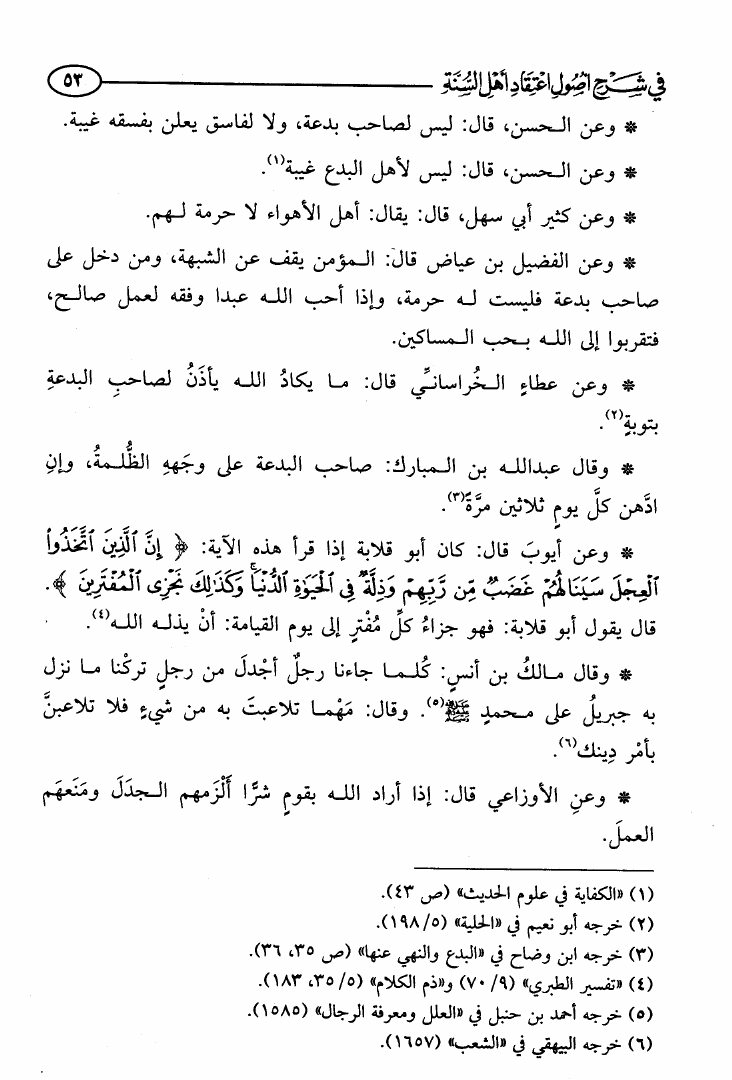 في شرح أصول اعتقاد أهل السنة ٥٣
* وعن الحسن، قال: ليس لصاحب بدعة، ولا لفاسق يعلن بفسقه غيبة.
* وعن الحسن، قال: ليس لأهل البدع غيبة(١).
* وعن كثير أبي سهل، قال: يقال: أهل الأهواء لا حرمة لهم.
* وعن الفضيل بن عياض قال: المؤمن يقف عن الشبهة، ومن دخل على
صاحب بدعة فليست له حرمة، وإذا أحب الله عبدا وفقه لعمل صالح،
فتقربوا إلى الله بحب المساكين.
* وعن عطاءٍ الخُراسانيِّ قال: ما يكادُ الله يأذَنُ لصاحبِ البدعةِ
بتوبةٍ(٢).
* وقال عبدالله بن المبارك: صاحب البدعة على وجَههِ الظُّلمةُ، وإنِ
ادَّهن كلَّ يومٍ ثلاثين مرَّةً(٣).
* وعن أيوبَ قال: كان أبو قلابة إذا قرأ هذه الآية: ﴿ إِنَّ ٱلَّذِينَ ٱتَّخَذُوا۟
ٱلْعِجْلَ سَيَنَالُهُمْ غَضَبٌ مِّن رَّبِّهِمْ وَذِلَّةٌ فِى ٱلْحَيَوٰةِ ٱلدُّنْيَا ۚ وَكَذَٰلِكَ نَجْزِى ٱلْمُفْتَرِينَ ﴾.
قال يقول أبو قلابة: فهو جزاءُ كلِّ مُفْترٍ إلى يوم القيامة: أنْ يذله الله(٤).
* وقال مالكُ بن أنسٍ: كُلما جاءنا رجلٌ أجْدلَ من رجلٍ تركْنا ما نزل
به جبريلُ على محمدٍ ﷺ(٥). وقال: مَهْما تلاعبتَ به من شيءٍ فلا تلاعبنَّ
بأمْر دِينك(٦).
* وعنِ الأوزاعي قال: إذا أراد الله بقومٍ شرًّا أَلْزَمهم الجدَلَ ومَنَعهَم
العملَ.
(١) «الكفاية في علوم الحديث» (ص ٤٣).
(٢) خرجه أبو نعيم في «الحلية» (٥/ ١٩٨).
(٣) خرجه ابن وضاح في «البدع والنهي عنها» (ص ٣٥، ٣٦).
(٤) «تفسير الطبري» (٩/ ٧٠) و«ذم الكلام» (٥/ ٣٥، ١٨٣).
(٥) خرجه أحمد بن حنبل في «العلل ومعرفة الرجال» (١٥٨٥).
(٦) خرجه البيهقي في «الشعب» (١٦٥٧).